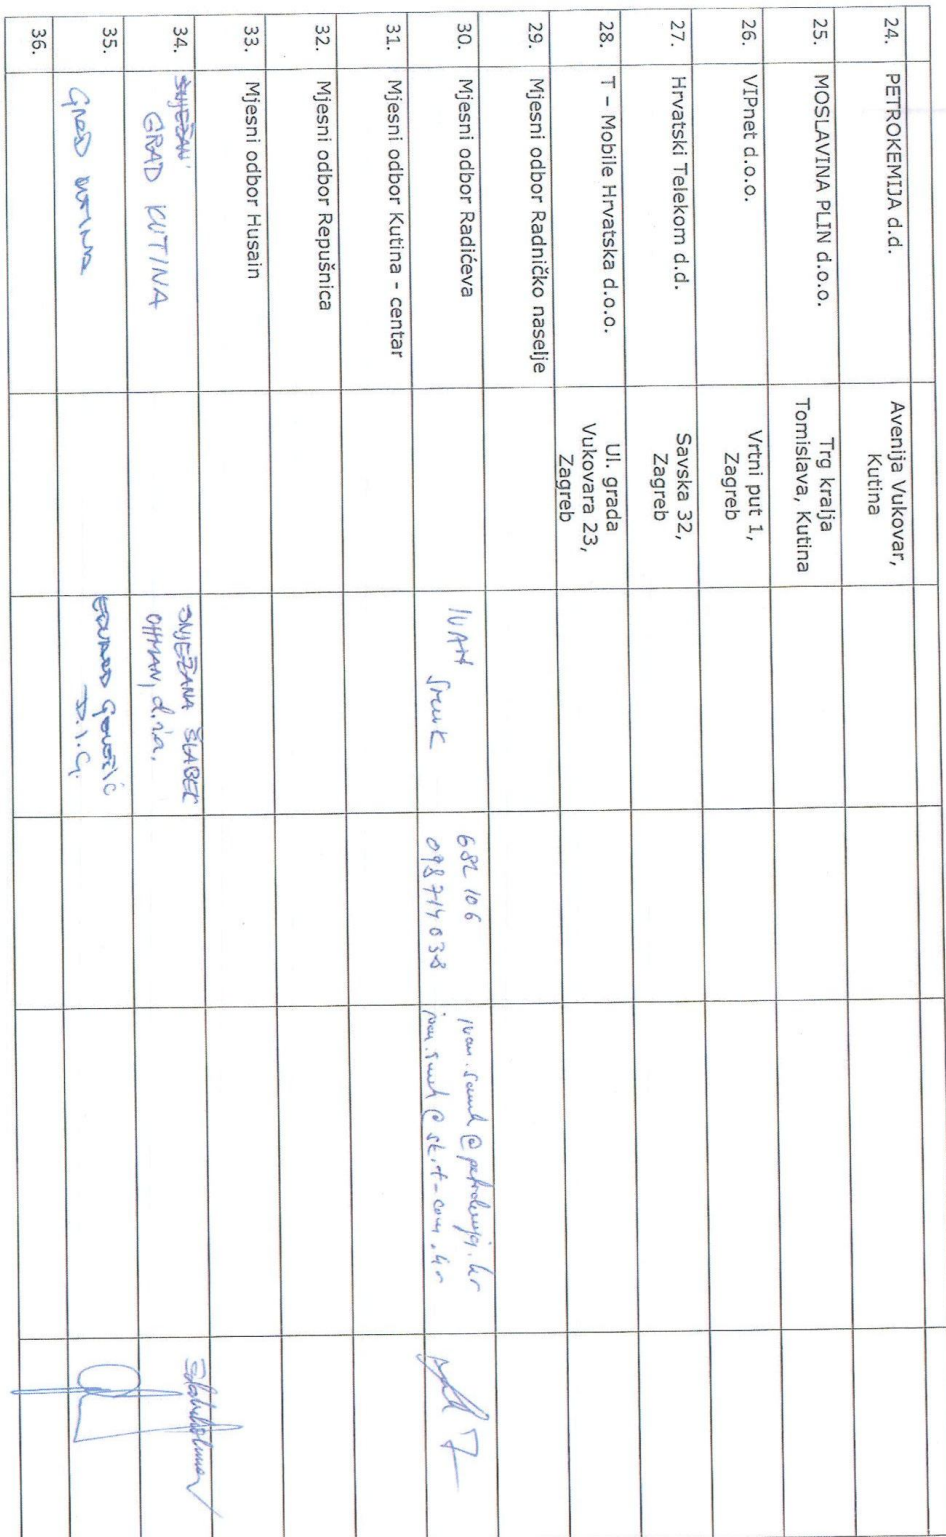 24. PETROKEMIJA d.d. Avenija Vukovar,
Kutina
25. MOSLAVINA PLIN d.o.o. Trg kralja
Tomislava, Kutina
26. VIPnet d.o.o. Vrtni put 1,
Zagreb
27. Hrvatski Telekom d.d. Savska 32,
Zagreb
28. T - Mobile Hrvatska d.o.o. Ul. grada
Vukovara 23,
Zagreb
29. Mjesni odbor Radničko naselje
30. Mjesni odbor Radićeva IVAN 682 106
098 714 038
31. Mjesni odbor Kutina - centar
32. Mjesni odbor Repušnica
33. Mjesni odbor Husain
34. GRAD KUTINA SNJEŽANA ŠLABEK
OHMAN, d.i.a.
35. GRAD KUTINA EDUARD
D.I.G.
36.